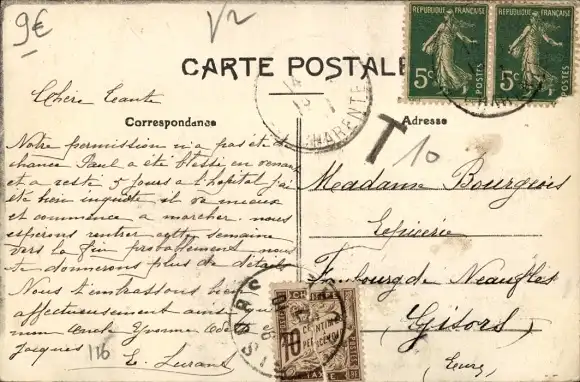 9€
V2
RÉPUBLIQUE FRANÇAISE
5c
POSTES
RÉPUBLIQUE FRANÇAISE
5c
POSTES
CARTE POSTALE
CHARENTE
T
10
Correspondance
Adresse
Chère Tante
Notre permission n'a pas été de
chance Paul a été blessé en venant
et a resté 5 jours a l'hopital j'ai
été bien inquiète il va mieux
et commence a marcher. nous
espérons rentrer cette semaine
vers la fin probablement nous
te donnerons plus de détails
Nous t'embrassons bien
affectueusement ainsi que
mon oncle Yvonne
Jacques
116
Madame Bourgeois
Epicerie
Faubourg de Neaufles
Gisors
Eure
GISORS
10
CENTIMES
À PERCEVOIR
TAXE